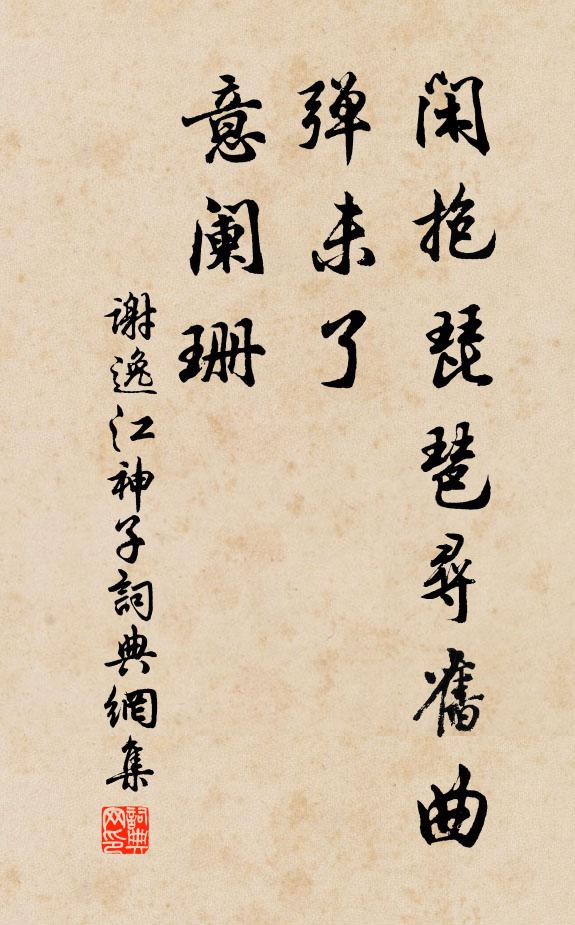 閑抱琵琶尋舊曲
彈未了
意闌珊
謝逸江神子詞典網集
詞典网印